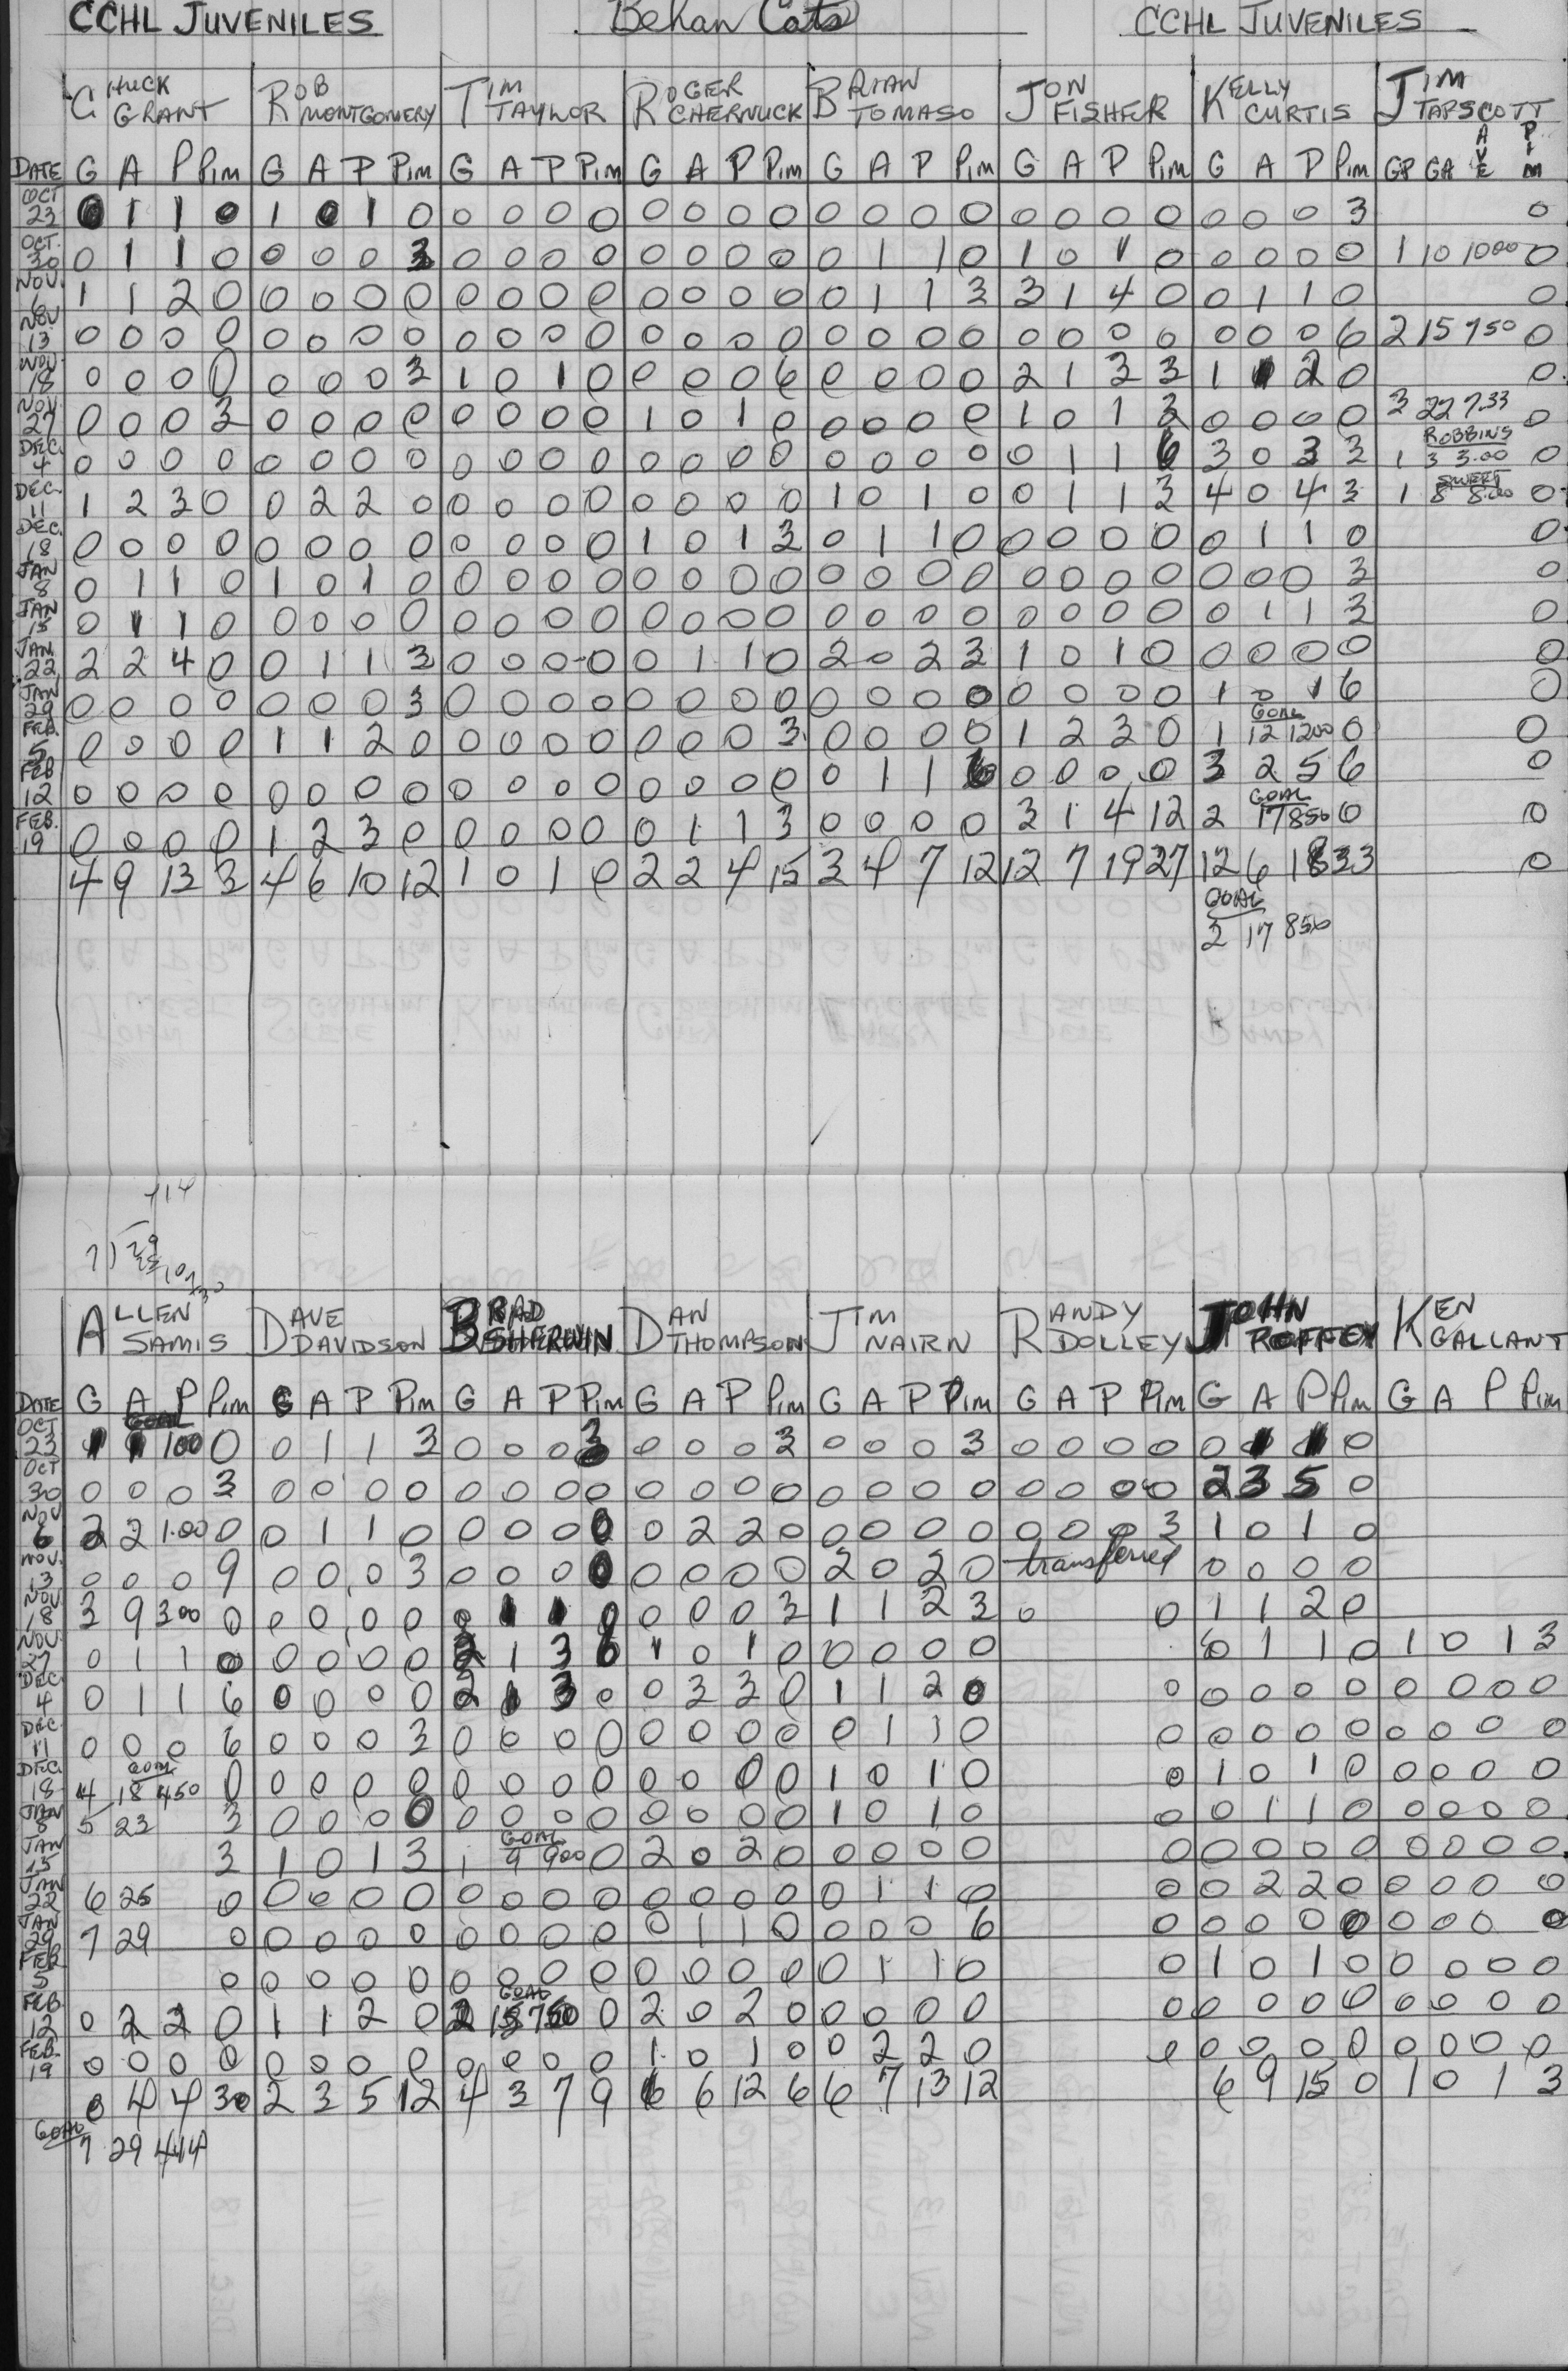 CCHL JUVENILES Behan Cats CCHL JUVENILES
CHUCK GRANT ROB MONTGOMERY TIM TAYLOR ROGER CHERNUCK BRIAN TOMASO JON FISHER KELLY CURTIS JIM TAPSCOTT
DATE G A P Pim G A P Pim G A P Pim G A P Pim G A P Pim G A P Pim G A P Pim GP GA AVE PIM
OCT 23 0 1 1 0 1 0 1 0 0 0 0 0 0 0 0 0 0 0 0 0 0 0 0 0 0 0 0 3 0
OCT. 30 0 1 1 0 0 0 0 3 0 0 0 0 0 0 0 0 0 1 1 0 1 0 1 0 0 0 0 0 1 10 1000 0
NOV. 6 1 1 2 0 0 0 0 0 0 0 0 0 0 0 0 0 0 1 1 3 3 1 4 0 0 1 1 0 0
NOV 13 0 0 0 0 0 0 0 0 0 0 0 0 0 0 0 0 0 0 0 0 0 0 0 0 0 0 0 6 2 15 750 0
NOV 18 0 0 0 0 0 0 0 3 1 0 1 0 0 0 0 6 0 0 0 0 2 1 3 3 1 1 2 0 0
NOV. 27 0 0 0 3 0 0 0 0 0 0 0 0 1 0 1 0 0 0 0 0 1 0 1 3 0 0 0 0 3 22 7.33 0
DEC. 4 0 0 0 0 0 0 0 0 0 0 0 0 0 0 0 0 0 0 0 0 0 1 1 6 3 0 3 3 ROBBINS 1 3 3.00 0
DEC. 11 1 2 3 0 0 2 2 0 0 0 0 0 0 0 0 0 1 0 1 0 0 1 1 3 4 0 4 3 SWEET 1 8 8.00 0
DEC. 18 0 0 0 0 0 0 0 0 0 0 0 0 1 0 1 3 0 1 1 0 0 0 0 0 0 1 1 0 0
JAN 8 0 1 1 0 1 0 1 0 0 0 0 0 0 0 0 0 0 0 0 0 0 0 0 0 0 0 0 3 0
JAN 15 0 1 1 0 0 0 0 0 0 0 0 0 0 0 0 0 0 0 0 0 0 0 0 0 0 1 1 3 0
JAN. 22 2 2 4 0 0 1 1 3 0 0 0 0 0 1 1 0 2 0 2 3 1 0 1 0 0 0 0 0 0
JAN 29 0 0 0 0 0 0 0 3 0 0 0 0 0 0 0 0 0 0 0 0 0 0 0 0 1 0 1 6 0
FEB. 5 0 0 0 0 1 1 2 0 0 0 0 0 0 0 0 3 0 0 0 0 1 2 3 0 1 GOAL 12 1200 0 0
FEB 12 0 0 0 0 0 0 0 0 0 0 0 0 0 0 0 0 0 1 1 6 0 0 0 0 3 2 5 6 0
FEB. 19 0 0 0 0 1 2 3 0 0 0 0 0 0 1 1 3 0 0 0 0 3 1 4 12 2 GOAL 17 850 0 0
4 9 13 3 4 6 10 12 1 0 1 0 2 2 4 15 3 4 7 12 12 7 19 27 12 6 18 33 0
GOAL
2 17 850
414
7)29
ALLEN SAMIS DAVE DAVIDSON BRAD SHERWIN DAN THOMPSON JIM NAIRN RANDY DOLLEY JOHN ROFFEY KEN GALLANT
DATE G A P Pim G A P Pim G A P Pim G A P Pim G A P Pim G A P Pim G A P Pim G A P Pim
OCT 23 1 GOAL 1 100 0 0 1 1 3 0 0 0 3 0 0 0 3 0 0 0 3 0 0 0 0 0 1 1 0
OCT 30 0 0 0 3 0 0 0 0 0 0 0 0 0 0 0 0 0 0 0 0 0 0 0 0 2 3 5 0
NOV 6 2 2 1.00 0 0 1 1 0 0 0 0 0 0 2 2 0 0 0 0 0 0 0 0 3 1 0 1 0
NOV. 13 0 0 0 9 0 0 0 3 0 0 0 0 0 0 0 0 2 0 2 0 transferred 0 0 0 0
NOV 18 3 9 300 0 0 0 0 0 0 1 1 0 0 0 0 3 1 1 2 3 0 0 1 1 2 0
NOV. 27 0 1 1 0 0 0 0 0 2 1 3 6 1 0 1 0 0 0 0 0 0 1 1 0 1 0 1 3
DEC. 4 0 1 1 6 0 0 0 0 2 1 3 0 0 3 3 0 1 1 2 0 0 0 0 0 0 0 0 0 0
DEC. 11 0 0 0 6 0 0 0 3 0 0 0 0 0 0 0 0 0 1 1 0 0 0 0 0 0 0 0 0 0
DEC. 18 4 GOAL 18 450 0 0 0 0 0 0 0 0 0 0 0 0 0 1 0 1 0 0 1 0 1 0 0 0 0 0
JAN 8 5 23 3 0 0 0 0 0 0 0 0 0 0 0 0 1 0 1 0 0 0 1 1 0 0 0 0 0
JAN 15 3 1 0 1 3 1 GOAL 9 900 0 2 0 2 0 0 0 0 0 0 0 0 0 0 0 0 0 0
JAN 22 6 25 0 0 0 0 0 0 0 0 0 0 0 0 0 0 1 1 0 0 0 2 2 0 0 0 0 0
JAN 29 7 29 0 0 0 0 0 0 0 0 0 0 1 1 0 0 0 0 6 0 0 0 0 0 0 0 0 0
FEB 5 0 0 0 0 0 0 0 0 0 0 0 0 0 0 1 1 0 0 1 0 1 0 0 0 0 0
FEB. 12 0 2 2 0 1 1 2 0 2 GOAL 15 750 0 2 0 2 0 0 0 0 0 0 0 0 0 0 0 0 0 0
FEB. 19 0 0 0 0 0 0 0 0 0 0 0 0 1 0 1 0 0 2 2 0 0 0 0 0 0 0 0 0 0
0 4 4 30 2 3 5 12 4 3 7 9 6 6 12 6 6 7 13 12 6 9 15 0 1 0 1 3
GOAL 7 29 414